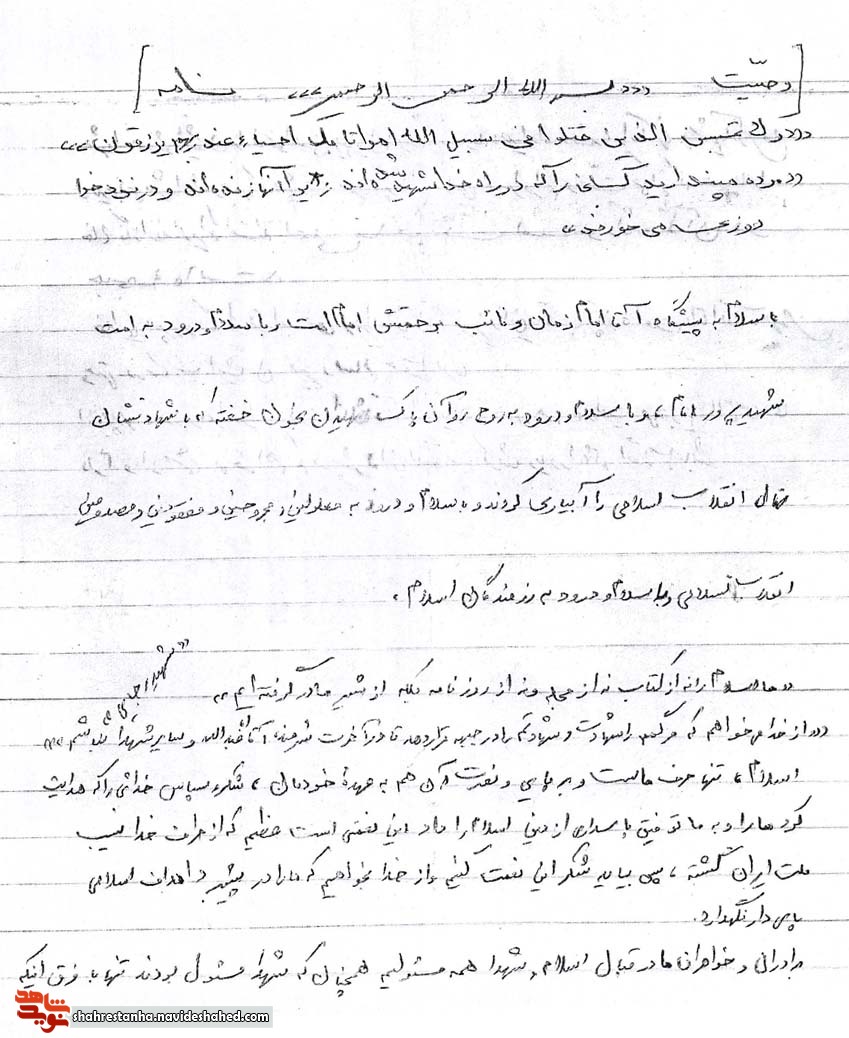 [ وصیّت «بسم الله الرحمن الرحیم» نامه ]
«ولا تحسبن الذین قتلوا فی سبیل الله امواتا بل احیاء عند ربهم یرزقون»
«مرده مپندارید کسانی را که در راه خدا شهید شده‌اند زیرا آنها زنده‌اند و در نزد خدا
روزی می‌خورند»
با سلام به پیشگاه آقا امام زمان و نائب برحقش امام امت و با سلام و درود به امت
شهید پرور امام، و با سلام و درود به روح روان پاک شهیدان بخون خفته که با شهادتشان
نهال انقلاب اسلامی را آبیاری کردند و با سلام و درود به معلولین و مجروحین و مفقودین و مصدومین
انقلاب اسلامی و با سلام و درود به رزمندگان اسلام.
«ما اسلام را نه از کتاب نه از معلم و نه از روزنامه بلکه از شیر مادر گرفته‌ایم» «شهید
«از خدا می‌خواهم که مرگم را شهادت و شهادتم را در جبهه قرار دهد تا در آخرت شرمنده آقا اباعبدالله و سایر شهدا نباشم»
اسلام، تنها حرف ماست و بر پایی و نصرت آن هم به عهدهٔ خودمان، شکر و سپاس خدائی را که هدایت
کرد ما را و به ما توفیق پاسداری از دین اسلام را داد این نعمتی است عظیم که از طرف خدا نصیب
ملت ایران گشته، پس بیایید شکر این نعمت کنیم و از خدا بخواهیم که ما را در پیشبرد اهداف اسلامی
پای دار نگهدارد.
برادران و خواهران ما در قبال اسلام و شهدا همه مسئولیم همچنان که شهدا مسئول بودند تنها با فرق اینکه
شاهد
نوید
shahrestanha.navideshahed.com